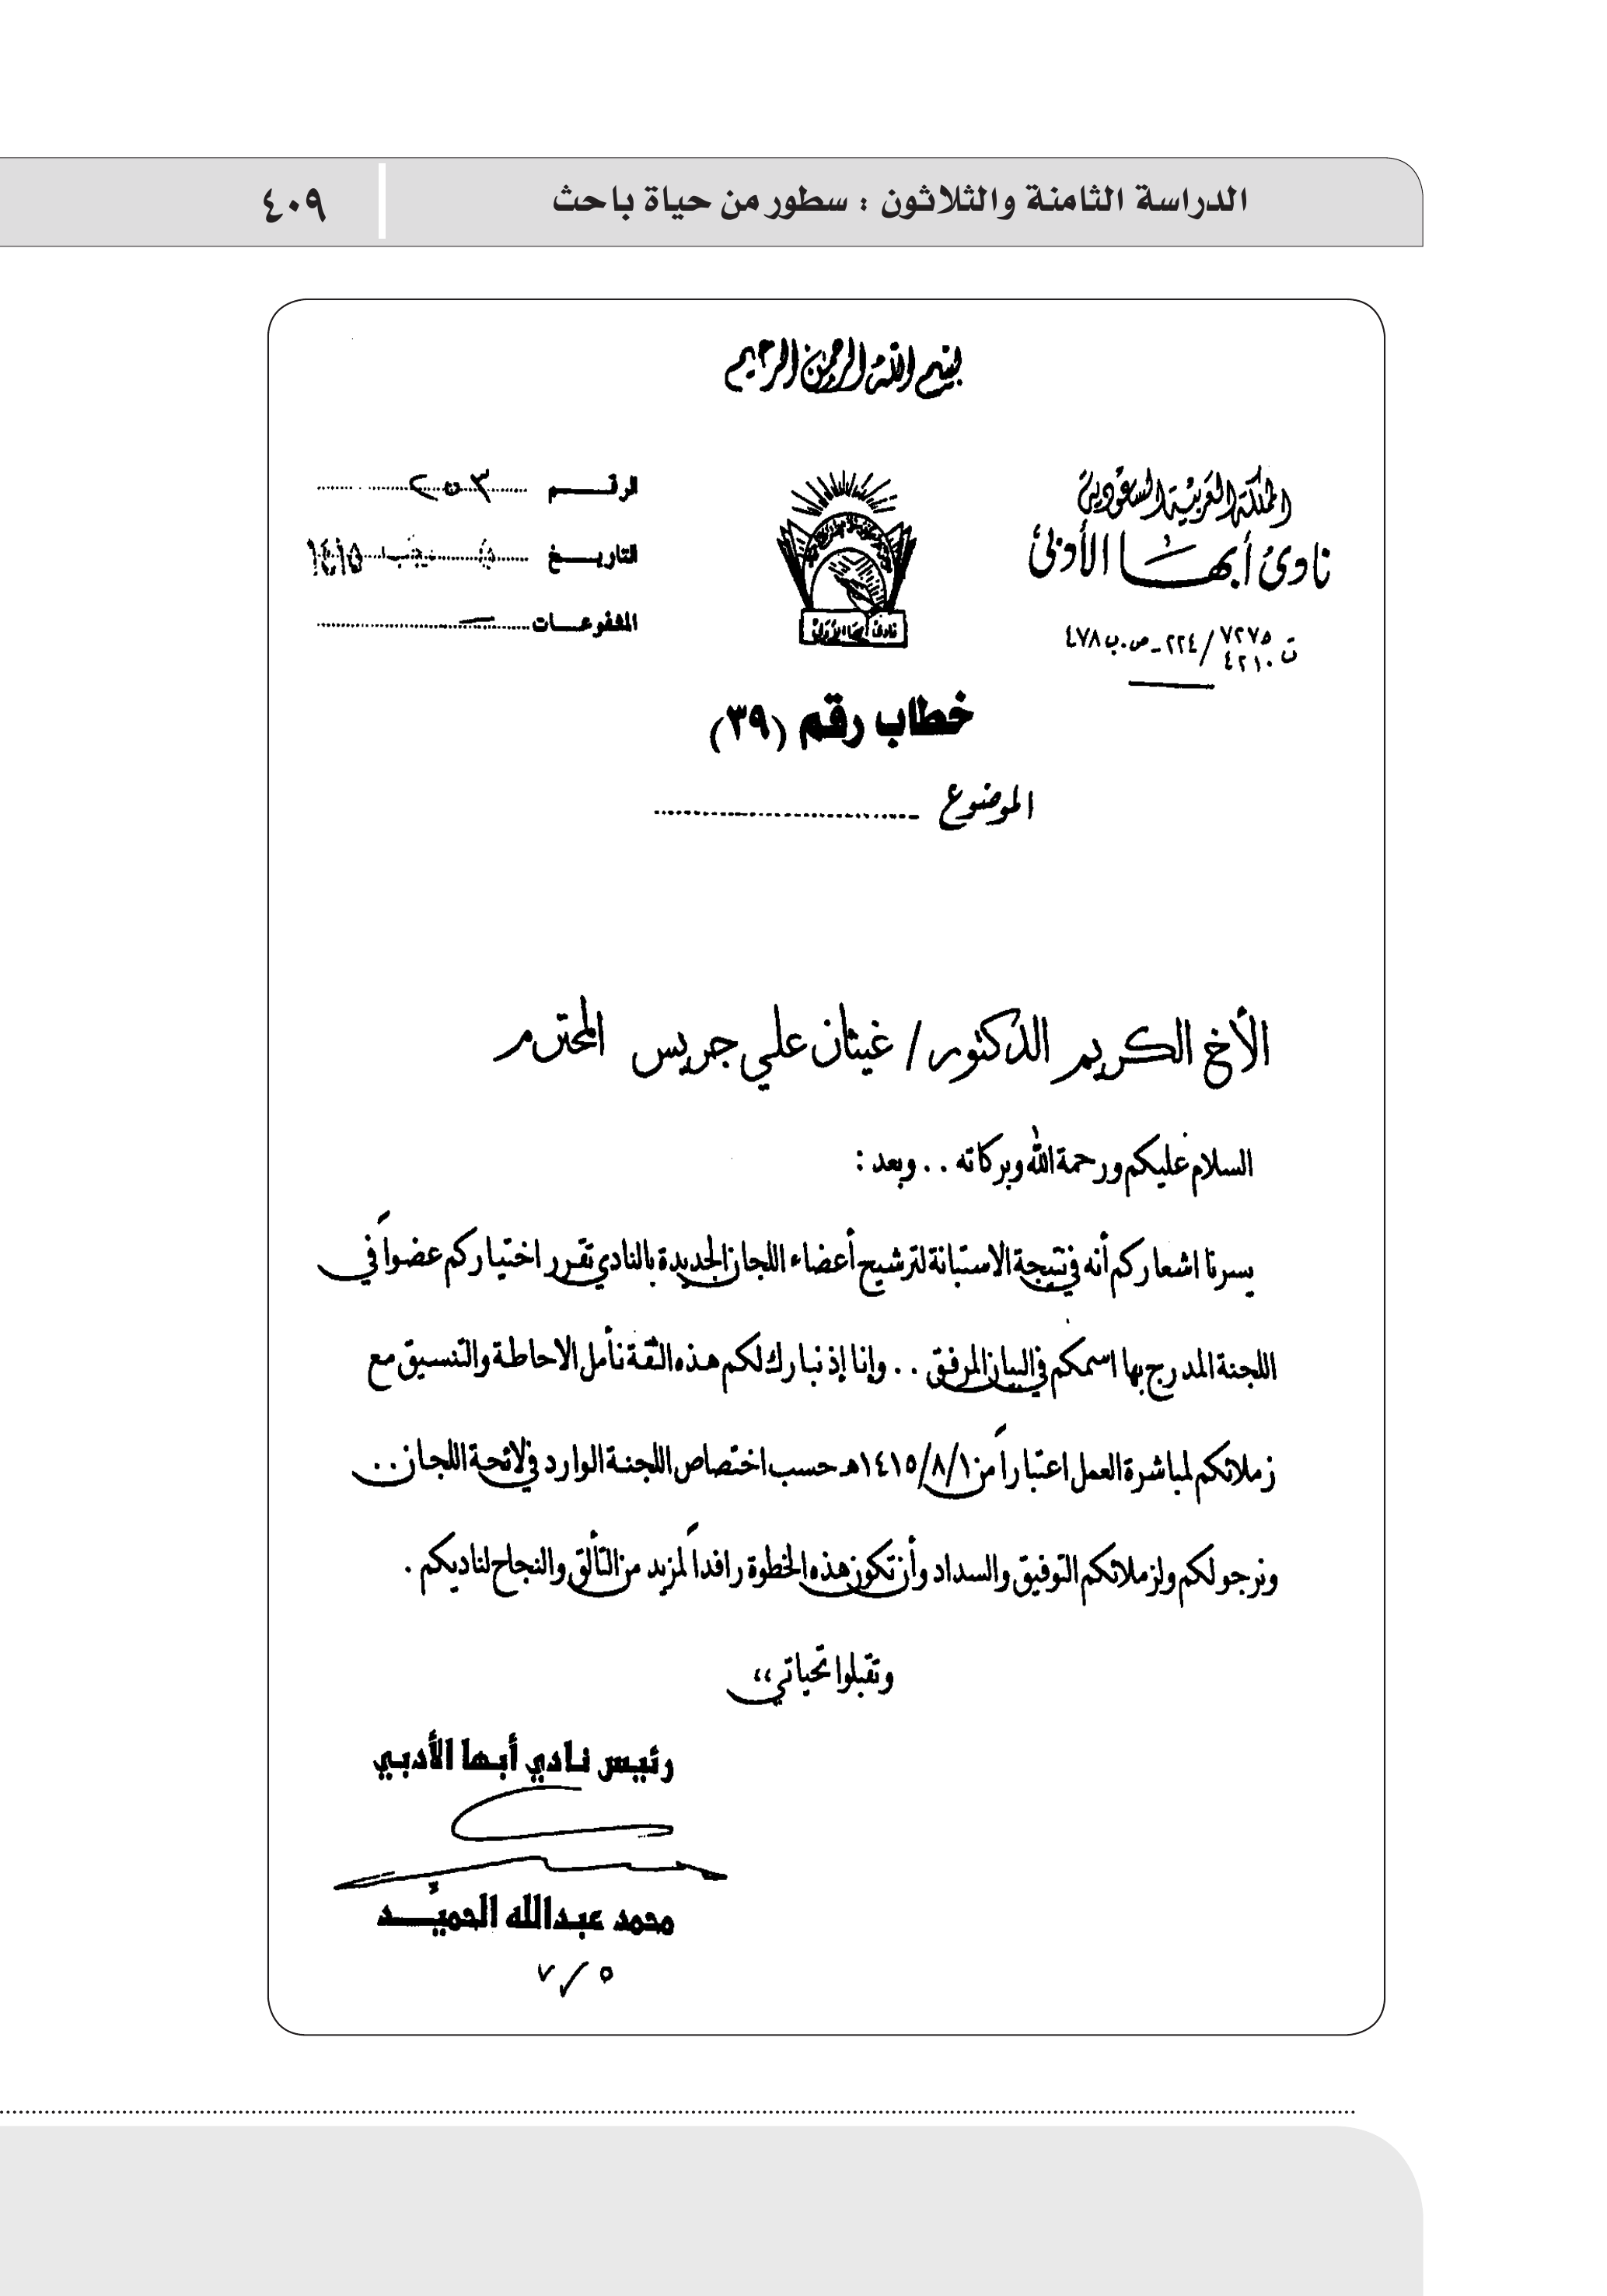 الدراسة الثامنة والثلاثون : سطور من حياة باحث
٤٠٩
بسم الله الرحمن الرحيم
المملكة العربية السعودية
نادي أبها الأدبي
ت ٧٢٧٥ / ٤٢١٠ / ٢٢٤ - ص.ب ٤٧٨
الرقم
التاريخ ٥ رجب ١٤١٥
المشفوعات
نادي أبها الأدبي
خطاب رقم (٣٩)
الموضوع
الأخ الكريم الدكتور / غيثان علي جريس المحترم
السلام عليكم ورحمة الله وبركاته . . وبعد :
يسرنا اشعاركم أنه في نتيجة الاستبانة لترشيح أعضاء اللجان الجديدة بالنادي تقرر اختياركم عضواً في
اللجنة المدرج بها اسمكم في البيان المرفق . . وإنا إذ نبارك لكم هذه الثقة نأمل الاحاطة والتنسيق مع
زملائكم لمباشرة العمل اعتباراً من ١٤١٥/٨/١هـ حسب اختصاص اللجنة الوارد في لائحة اللجان . .
ونرجو لكم ولزملائكم التوفيق والسداد وأن تكون هذه الخطوة رافداً لمزيد من التألق والنجاح لناديكم .
وتقبلوا تحياتي ،،
رئيس نادي أبها الأدبي
محمد عبدالله الحميد
٧/٥